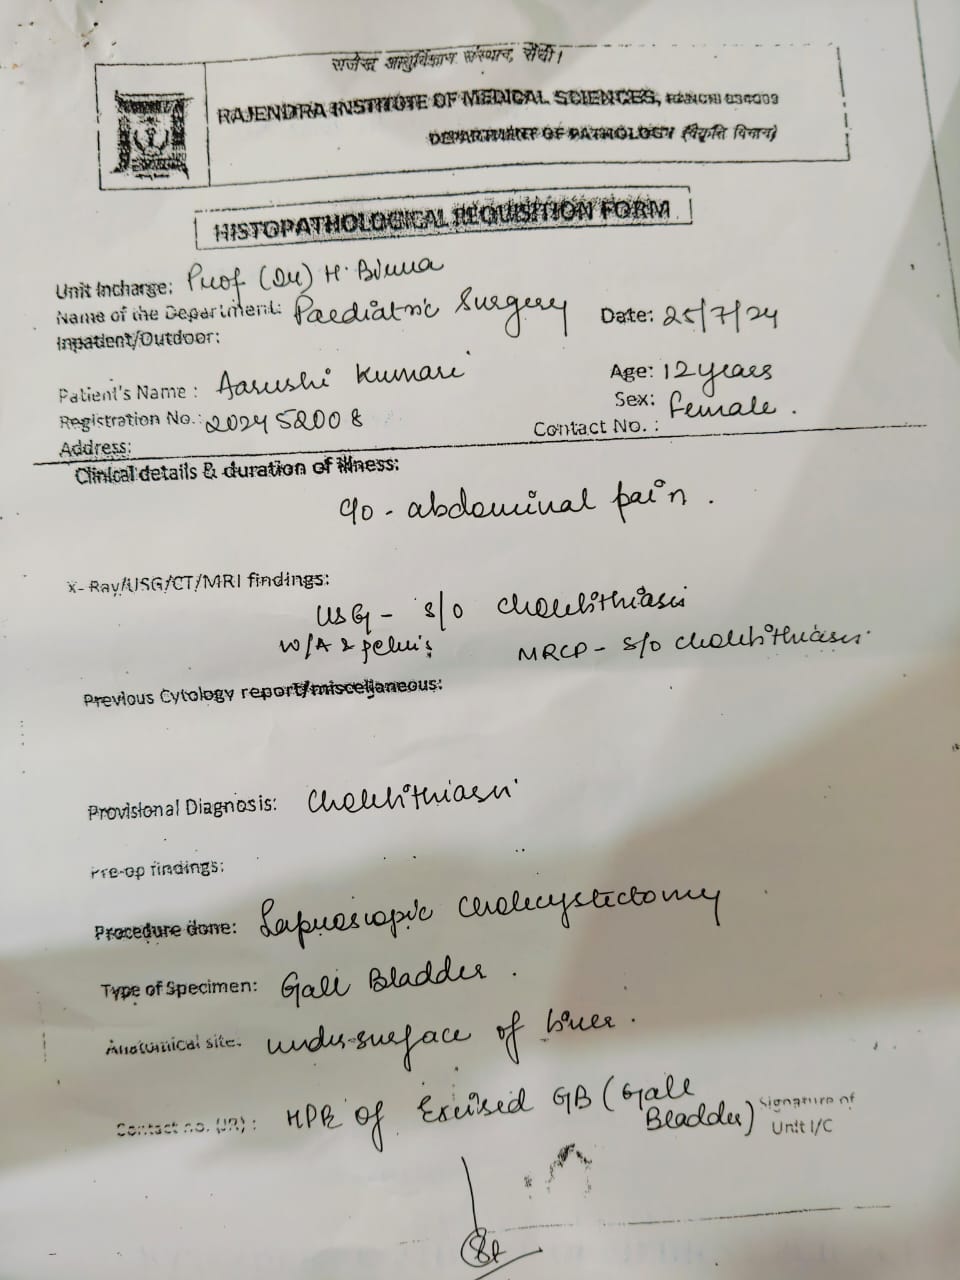 राजेन्द्र आयुर्विज्ञान संस्थान, राँची।
RAJENDRA INSTITUTE OF MEDICAL SCIENCES, RANCHI 834009
DEPARTMENT OF PATHOLOGY (विकृति विभाग)
HISTOPATHOLOGICAL REQUISITION FORM
Unit Incharge: Prof (Dr) H. Birua
Name of the Department: Paediatric Surgery Date: 25/7/24
Inpatient/Outdoor:
Patient's Name : Aarushi Kumari Age: 12 years
Registration No.: 202452008 Sex: female.
Address: Contact No. :
Clinical details & duration of illness:
c/o - abdominal pain.
X-Ray/USG/CT/MRI findings:
USG - s/o cholelithiasis
W/A & pelvis MRCP - s/o cholelithiasis.
Previous Cytology report/miscellaneous:
Provisional Diagnosis: Cholelithiasis
Pre-op findings:
Procedure done: Laproscopic cholecystectomy
Type of Specimen: Gall Bladder.
Anatomical site: under-surface of liver.
Contact no. (JR) : HPR of Excised GB (Gall Bladder) Signature of Unit I/C